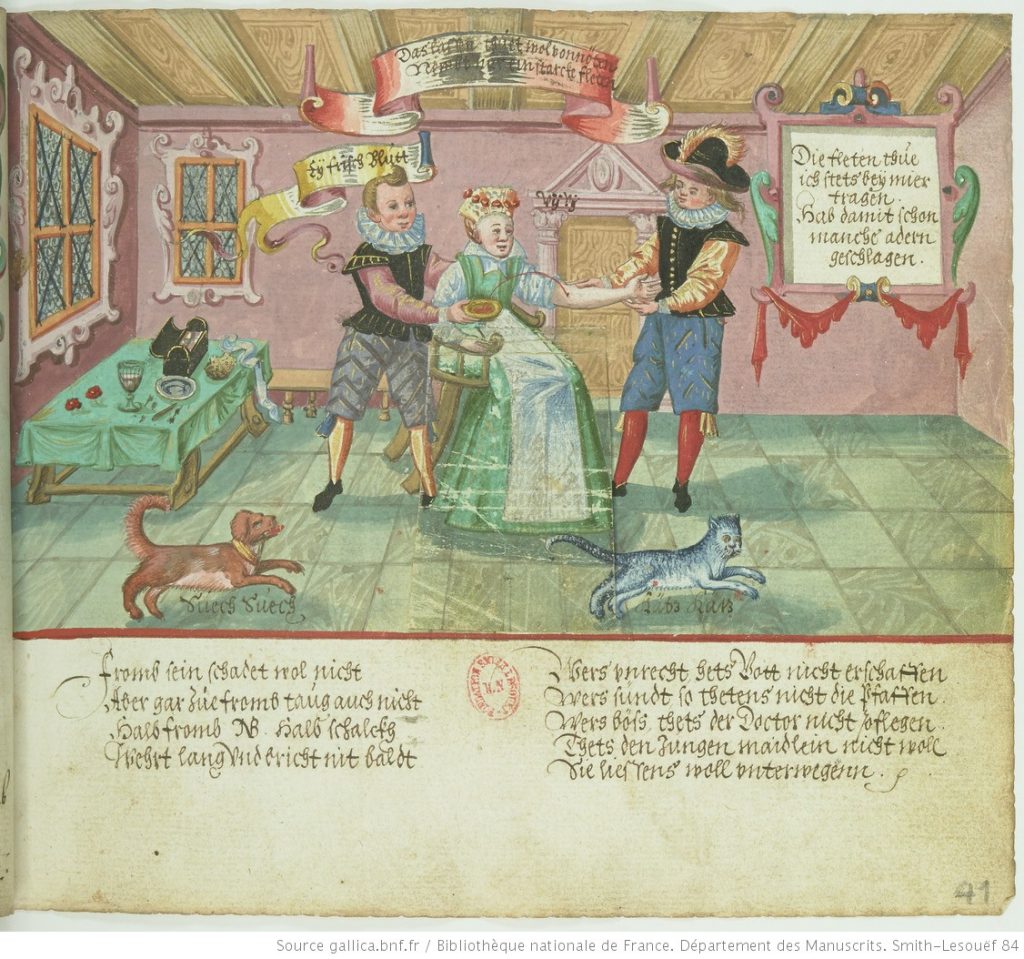 Das lassen thuet wol vonnöten
Nemen nur ein starcke fleten
Ey frisch Blutt
Die fleten thue
ich stets bey mier
tragen.
Hab damit schon
manche adern
geschlagen.
Suech Suech
Katz Katz
fromb sein schadet wol nicht
Aber gar zue fromb taug auch nicht
Halb fromb NB. Halb schalckh
Wehrt lang Vnd bricht nit baldt
Wers vnrecht, hets Gott nicht erschaffen
Wers sundt so thetens nicht die Pfaffen.
Wers böss, thets der Doctor nicht pflegen.
Thets den Jungen maidlein nicht woll
Sie liessens woll vnterwegenn.
41
Source gallica.bnf.fr / Bibliothèque nationale de France. Département des Manuscrits. Smith-Lesouëf 84